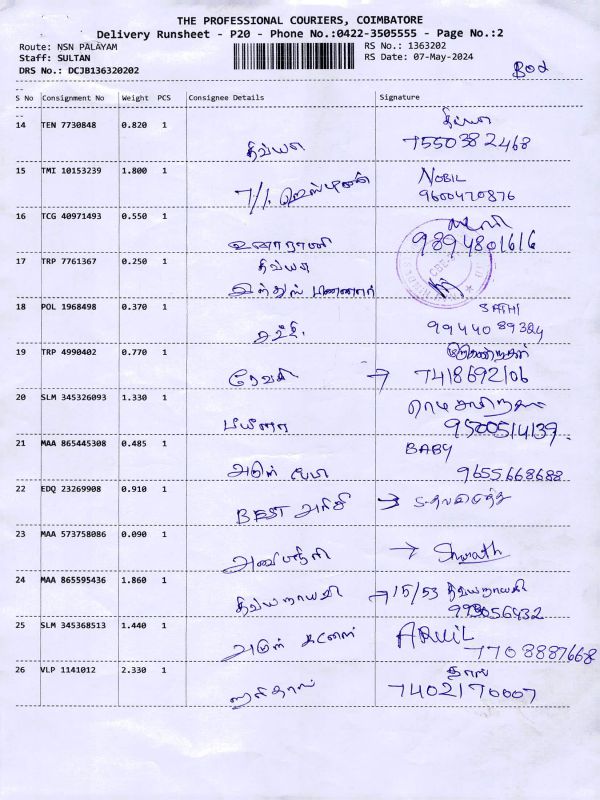 THE PROFESSIONAL COURIERS, COIMBATORE
Delivery Runsheet - P20 - Phone No.:0422-3505555 - Page No.:2
Route: NSN PALAYAM RS No.: 1363202
Staff: SULTAN RS Date: 07-May-2024
DRS No.: DCJB136320202
S No Consignment No Weight PCS Consignee Details Signature
14 TEN 7730848 0.820 1 திவ்யா
7550382468
15 TMI 10153239 1.800 1 NOBIL
9600470876
16 TCG 40971493 0.550 1
9894801616
17 TRP 7761367 0.250 1 திவ்யா
18 POL 1968498 0.370 1 SATHI
99440 89324
19 TRP 4990402 0.770 1
ரேவதி → 7418692106
20 SLM 345326093 1.330 1
9500514139.
21 MAA 865445308 0.485 1 BABY
அருள் 9655668688
22 EDQ 23269908 0.910 1
BEST அரிசி →
23 MAA 573758086 0.090 1
→ Sharath
24 MAA 865595436 1.860 1
திவ்யநாயகி → 15/53 திவ்யநாயகி
25 SLM 345368513 1.440 1
அருள் 7708887668
26 VLP 1141012 2.330 1 தாஸ்
ஹரிதாஸ் 7402170007